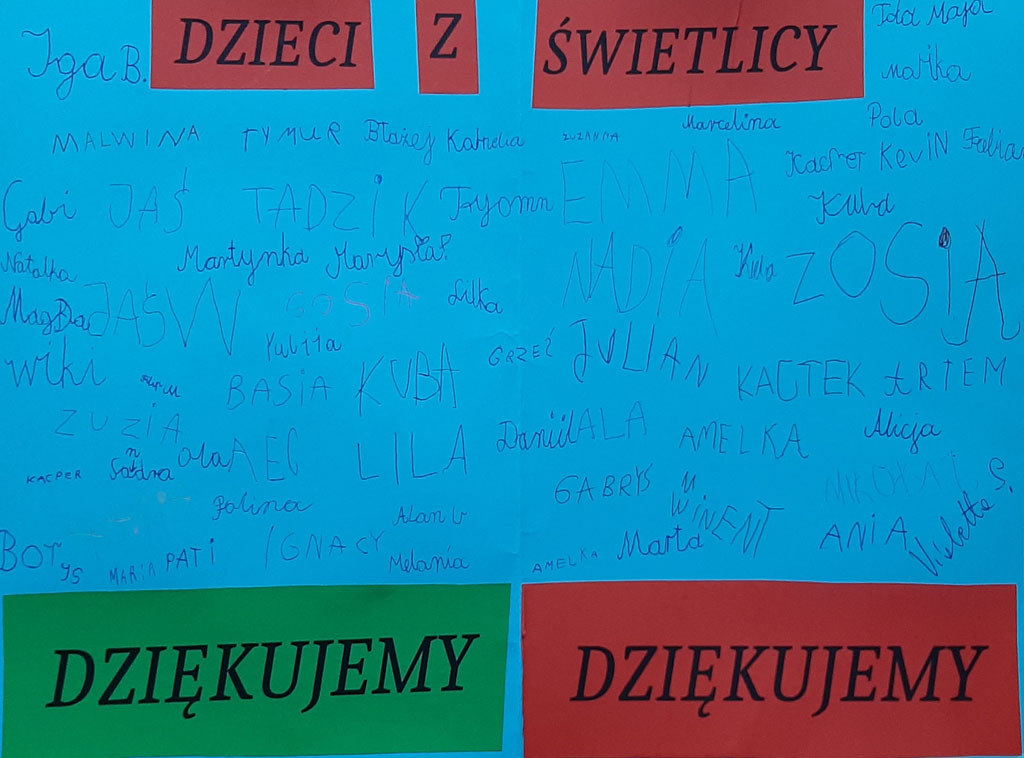 DZIECI Z ŚWIETLICY
Iga B. Ida Maja
MALWINA TYMUR Błażej Kornelia ZUZANNA Marcelina Pola
Gabi JAŚ TADZIK EMMA Kacper KEVIN Fabian
Kuba
Natalka Martynka Marysia? NADIA Kuba ZOSIA
Magda JAŚ GOSIA Lilka
Wiki Julita GRZEŚ JULIAN KACTEK ARTEM
BASIA KUBA
ZUZIA Ola LILA Daniil ALA AMELKA Alicja
KACPER Sandra GABRYŚ MIKOŁAJ
Polina Alan W WINENT Wioletta S.
BORYS MARIA PATI IGNACY Melania AMELKA Marta ANIA
DZIĘKUJEMY DZIĘKUJEMY